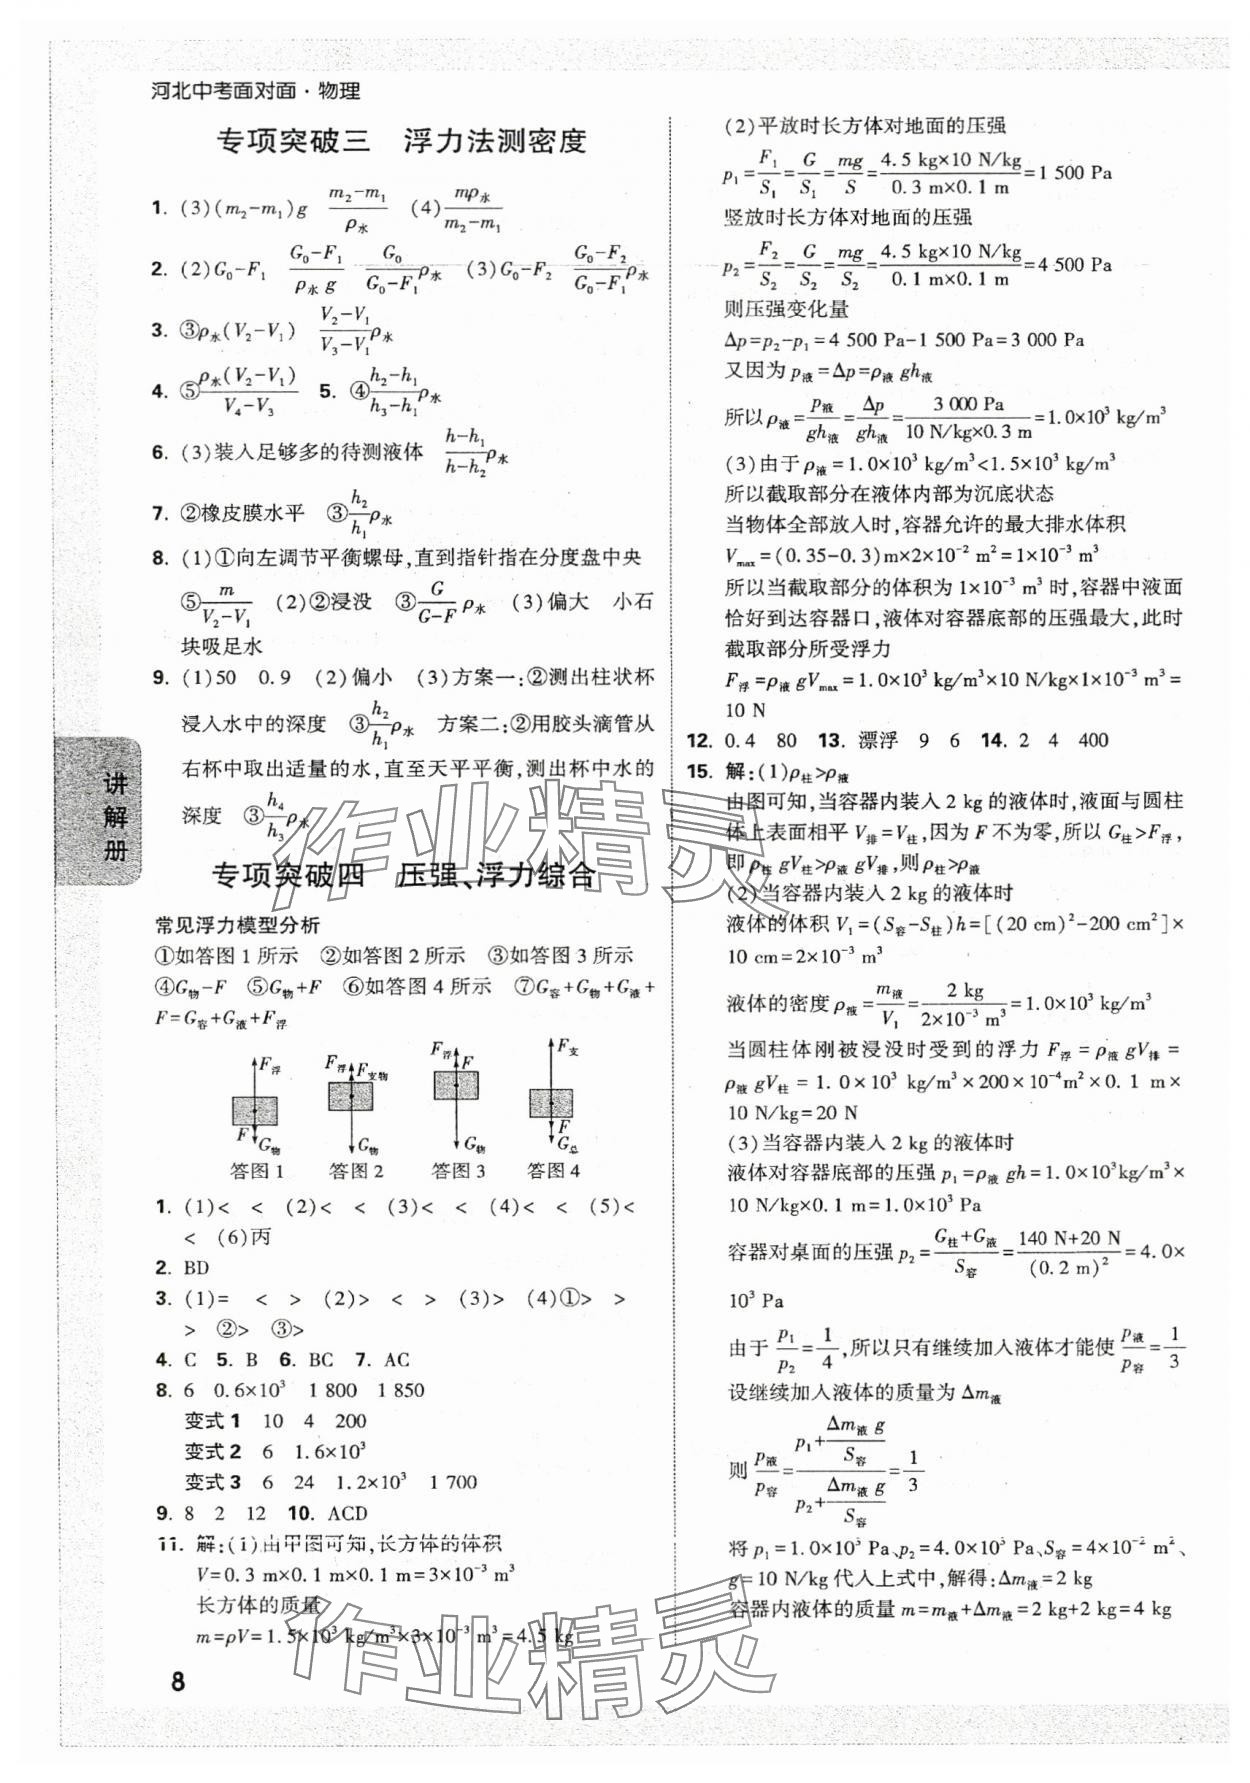 河北中考面对面·物理
专项突破三 浮力法测密度
1. (3)(m₂-m₁)g (m₂-m₁)/ρ水 (4)mρ水/(m₂-m₁)
2. (2)G₀-F₁ (G₀-F₁)/(ρ水 g) G₀/(G₀-F₁)ρ水 (3)G₀-F₂ (G₀-F₂)/(G₀-F₁)ρ水
3. ③ρ水(V₂-V₁) (V₂-V₁)/(V₃-V₁)ρ水
4. ⑤ρ水(V₂-V₁)/(V₄-V₃) 5. ④(h₂-h₁)/(h₃-h₁)ρ水
6. (3)装入足够多的待测液体 (h-h₁)/(h-h₂)ρ水
7. ②橡皮膜水平 ③h₂/h₁ρ水
8. (1)①向左调节平衡螺母,直到指针指在分度盘中央
⑤m/(V₂-V₁) (2)②浸没 ③G/(G-F)ρ水 (3)偏大 小石
块吸足水
9. (1)50 0.9 (2)偏小 (3)方案一:②测出柱状杯
浸入水中的深度 ③h₂/h₁ρ水 方案二:②用胶头滴管从
右杯中取出适量的水,直至天平平衡,测出杯中水的
深度 ③h₄/h₃ρ水
专项突破四 压强、浮力综合
常见浮力模型分析
①如答图1所示 ②如答图2所示 ③如答图3所示
④G物-F ⑤G物+F ⑥如答图4所示 ⑦G容+G物+G液+
F=G容+G液+F浮
F浮 F G物
F浮 F支物 G物
F浮 F G物
F支 F G总
答图1 答图2 答图3 答图4
1. (1)< < (2)< < (3)< < (4)< < (5)<
< (6)丙
2. BD
3. (1)= < > (2)> < > (3)> (4)①> >
> ②> ③>
4. C 5. B 6. BC 7. AC
8. 6 0.6×10³ 1 800 1 850
变式1 10 4 200
变式2 6 1.6×10³
变式3 6 24 1.2×10³ 1 700
9. 8 2 12 10. ACD
11. 解:(1)由甲图可知,长方体的体积
V=0.3 m×0.1 m×0.1 m=3×10⁻³ m³
长方体的质量
m=ρV=1.5×10³ kg/m³×3×10⁻³ m³=4.5 kg
(2)平放时长方体对地面的压强
p₁=F₁/S₁=G/S₁=mg/S=(4.5 kg×10 N/kg)/(0.3 m×0.1 m)=1 500 Pa
竖放时长方体对地面的压强
p₂=F₂/S₂=G/S₂=mg/S₂=(4.5 kg×10 N/kg)/(0.1 m×0.1 m)=4 500 Pa
则压强变化量
Δp=p₂-p₁=4 500 Pa-1 500 Pa=3 000 Pa
又因为p液=Δp=ρ液 gh液
所以ρ液=p液/gh液=Δp/gh液=3 000 Pa/(10 N/kg×0.3 m)=1.0×10³ kg/m³
(3)由于ρ液=1.0×10³ kg/m³<1.5×10³ kg/m³
所以截取部分在液体内部为沉底状态
当物体全部放入时,容器允许的最大排水体积
Vmax=(0.35-0.3)m×2×10⁻² m²=1×10⁻³ m³
所以当截取部分的体积为1×10⁻³ m³时,容器中液面
恰好到达容器口,液体对容器底部的压强最大,此时
截取部分所受浮力
F浮=ρ液 gVmax=1.0×10³ kg/m³×10 N/kg×1×10⁻³ m³=
10 N
12. 0.4 80 13. 漂浮 9 6 14. 2 4 400
15. 解:(1)ρ柱>ρ液
由图可知,当容器内装入2 kg的液体时,液面与圆柱
体上表面相平V排=V柱,因为F不为零,所以G柱>F浮,
即ρ柱 gV柱>ρ液 gV排,则ρ柱>ρ液
(2)当容器内装入2 kg的液体时
液体的体积V₁=(S容-S柱)h=[(20 cm)²-200 cm²]×
10 cm=2×10⁻³ m³
液体的密度ρ液=m液/V₁=2 kg/(2×10⁻³ m³)=1.0×10³ kg/m³
当圆柱体刚被浸没时受到的浮力F浮=ρ液 gV排=
ρ液 gV柱=1.0×10³ kg/m³×200×10⁻⁴m²×0.1 m×
10 N/kg=20 N
(3)当容器内装入2 kg的液体时
液体对容器底部的压强p₁=ρ液 gh=1.0×10³kg/m³×
10 N/kg×0.1 m=1.0×10³ Pa
容器对桌面的压强p₂=(G柱+G液)/S容=(140 N+20 N)/(0.2 m)²=4.0×
10³ Pa
由于p₁/p₂=1/4,所以只有继续加入液体才能使p液/p容=1/3
设继续加入液体的质量为Δm液
则p液/p容=(p₁+Δm液 g/S容)/(p₂+Δm液 g/S容)=1/3
将p₁=1.0×10³ Pa、p₂=4.0×10³ Pa、S容=4×10⁻² m²、
g=10 N/kg代入上式中,解得:Δm液=2 kg
容器内液体的质量m=m液+Δm液=2 kg+2 kg=4 kg
讲解册
8
作业精灵
作业精灵